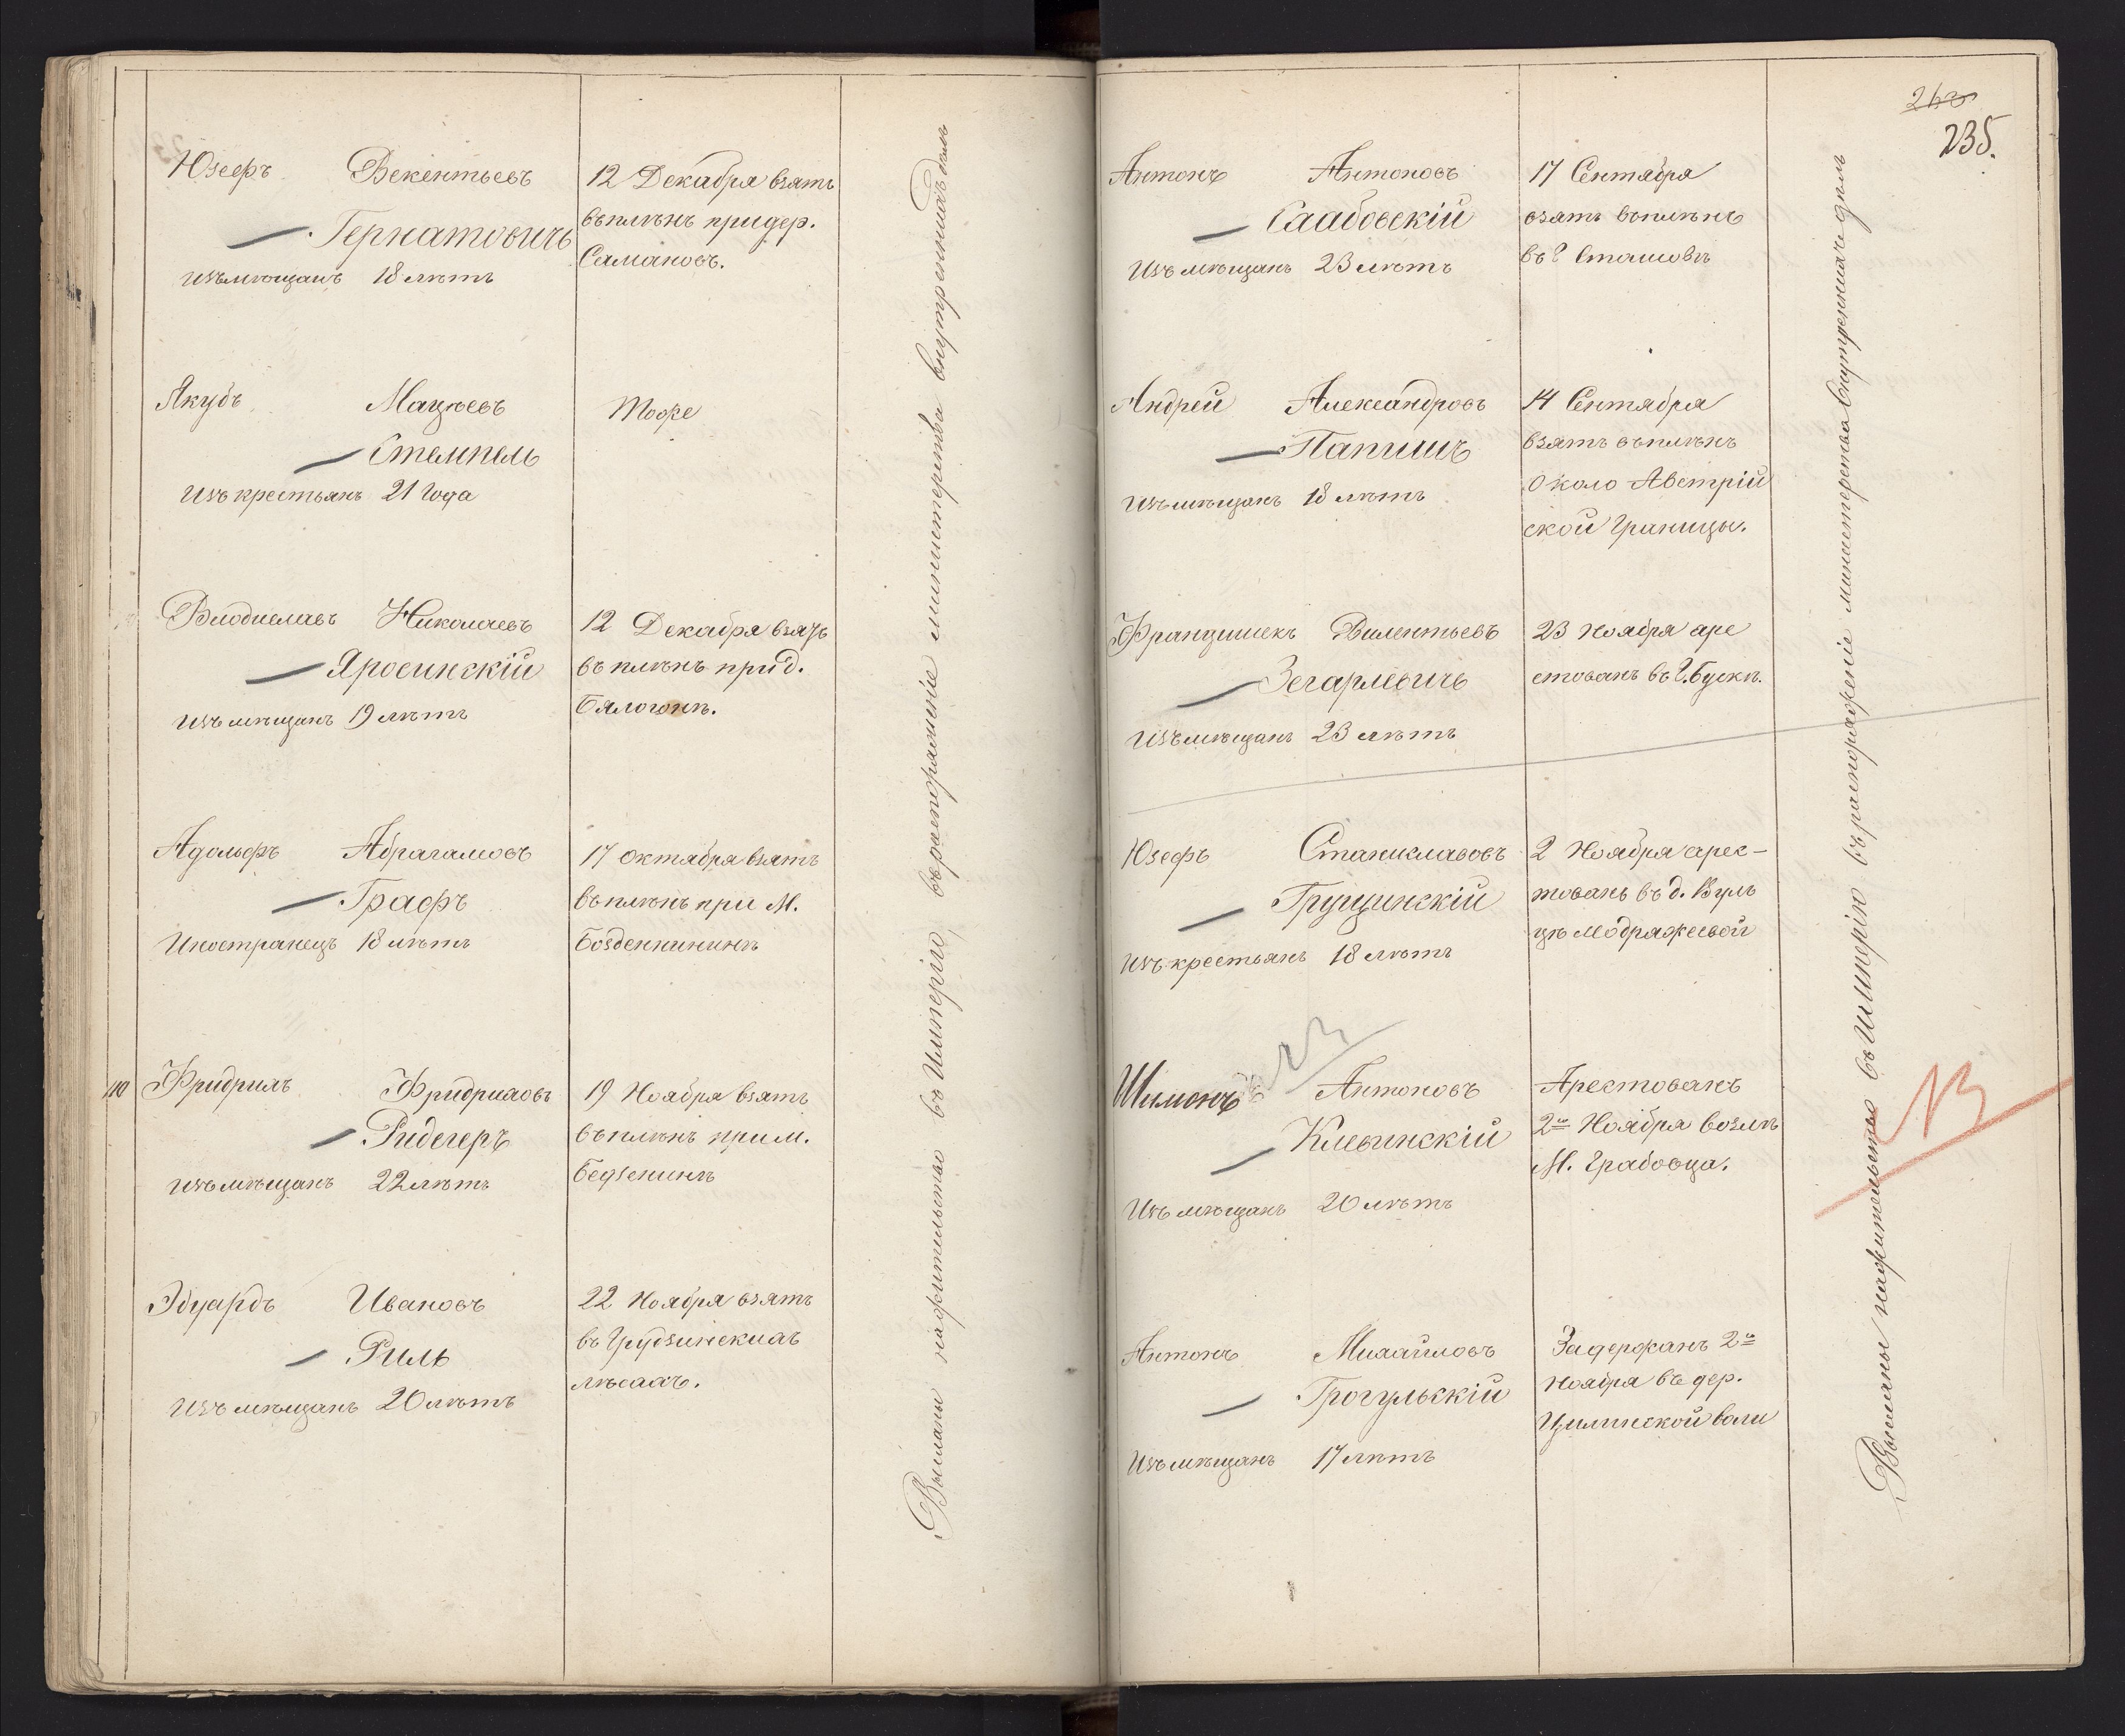 Юзефъ Векентьевъ
Гернатовичъ
изъ мѣщанъ 18 лѣтъ
12 Декабря взятъ
въ плѣнъ при дер.
Самановъ.
Якубъ Мацѣевъ
Стемпель
изъ крестьянъ 21 года
Тоже
Влодиславъ Николаевъ
Яросинскій
изъ мѣщанъ 19 лѣтъ
12 Декабря взятъ
въ плѣнъ при д.
Бялогонѣ.
Адольфъ Абрагамовъ
Графъ
Иностранецъ 18 лѣтъ
17 октября взятъ
въ плѣнъ при М.
110 Фридрихъ Фридриховъ
Ридегеръ
изъ мѣщанъ 22 лѣтъ
19 Ноября взятъ
въ плѣнъ при м.
Эдуардъ Ивановъ
Риль
изъ мѣщанъ 20 лѣтъ
22 Ноября взятъ
въ Грудзинскихъ
лѣсахъ.
Высланы на жительство въ Имперію, въ распоряженіе министерства внутреннихъ дѣлъ
235.
Антонъ Антоновъ
Слабовскій
Изъ мѣщанъ 23 лѣтъ
17 Сентября
взятъ въ плѣнъ
въ г Сташовѣ
Андрей Александровъ
Папишъ
изъ мѣщанъ 18 лѣтъ
14 Сентября
взятъ въ плѣнъ
около Австрій
ской границы.
Францишекъ Вилентьевъ
Зегарлевичъ
изъ мѣщанъ 23 лѣтъ
23 Ноября аре
стованъ въ г. Бускѣ.
Юзефъ Станиславовъ
Грущинскій
изъ крестьянъ 18 лѣтъ
2 Ноября арес-
тованъ въ д. Вуль
цѣ Модряжевой
Шимонъ Антоновъ
Клевинскій
Изъ мѣщанъ 20 лѣтъ
Арестованъ
2го Ноября возлѣ
М. Грабовца.
Антонъ Михайловъ
Грогульскій
Изъ мѣщанъ 17 лѣтъ
Задержанъ 2го
Ноября въ дер.
Цилинской воли
Высланы на жительство въ Имперію въ распоряженіе министерства внутреннихъ дѣлъ